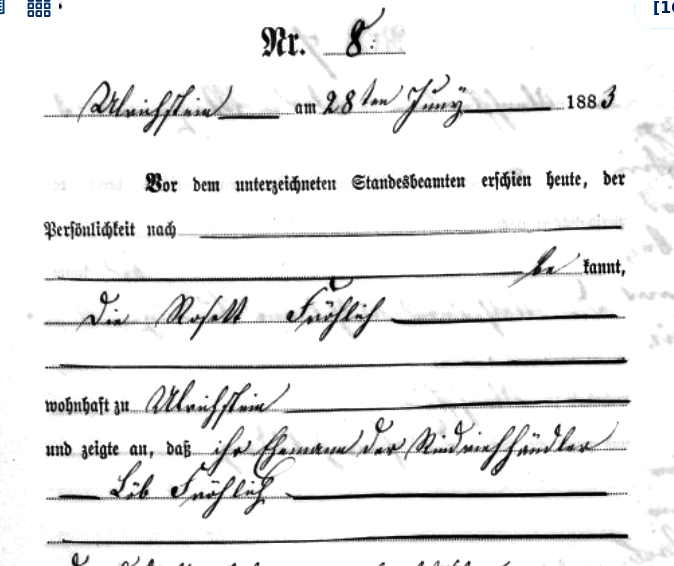 [1
Nr. 8.
Ulrichstein am 28ten Juny 1883
Vor dem unterzeichneten Standesbeamten erschien heute, der
Persönlichkeit nach
be kannt,
die Rosett Fröhlich
wohnhaft zu Ulrichstein
und zeigte an, daß ihr Ehemann der Rindviehhändler
Löb Fröhlich